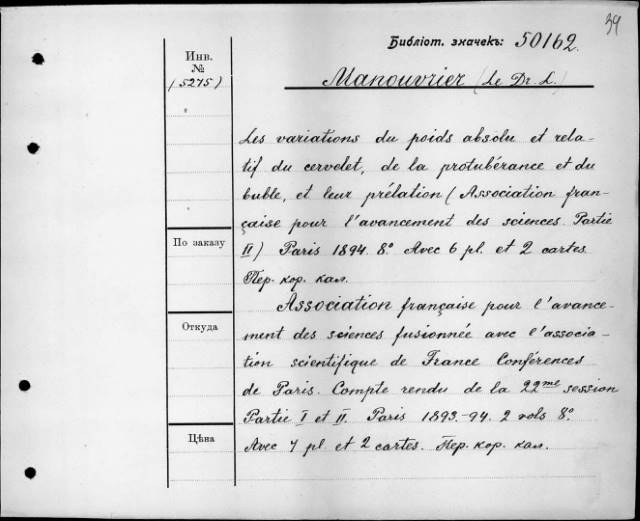 39
Библіот. значекъ: 50162.
Инв.
№
(5275)
Manouvrier (Le Dr. L.)
Les variations du poids absolu et rela-
tif du cervelet, de la protubérance et du
buble, et leur prélation (Association fran-
çaise pour l'avancement des sciences. Partie
II) Paris 1894. 8º. Avec 6 pl. et 2 cartes.
Пер. кор. кал.
Association française pour l'avance-
ment des sciences fusionnée avec l'associa-
tion scientifique de France Conférences
de Paris. Compte rendu de la 22me session
Partie I et II. Paris 1893.-94. 2 vols 8º.
Avec 7 pl. et 2 cartes. Пер. кор. кал.
По заказу
Откуда
Цѣна